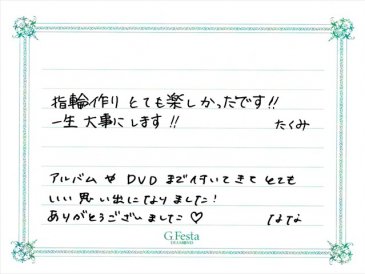 指輪作り とても楽しかったです!!
一生 大事にします!! たくみ
アルバム や DVD まで付いてきて とても
いい思い出になりました!
ありがとうございました♡ はな
G.Festa
DIAMOND